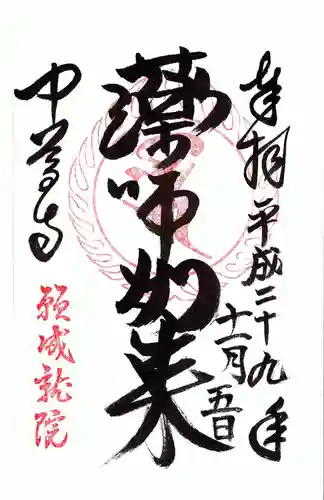 奉拝 平成二十九年
十一月五日
薬師如来
中尊寺
願成就院